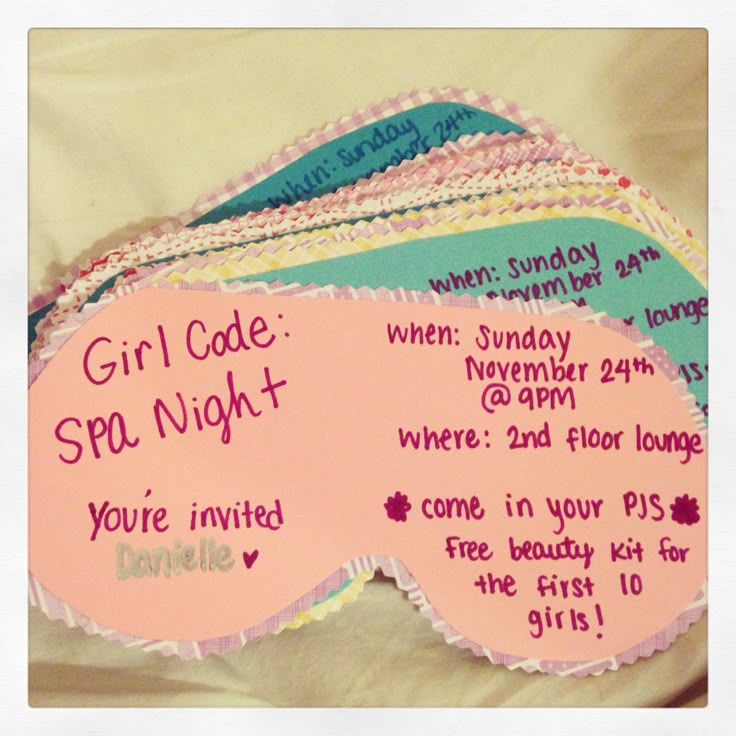 When: Sunday
24th
When: Sunday
November 24th
lounge
Girl Code:
Spa Night
You're invited
Danielle
When: Sunday
November 24th
@ 9PM
Where: 2nd floor lounge
come in your PJS
Free beauty kit for
the first 10
girls!